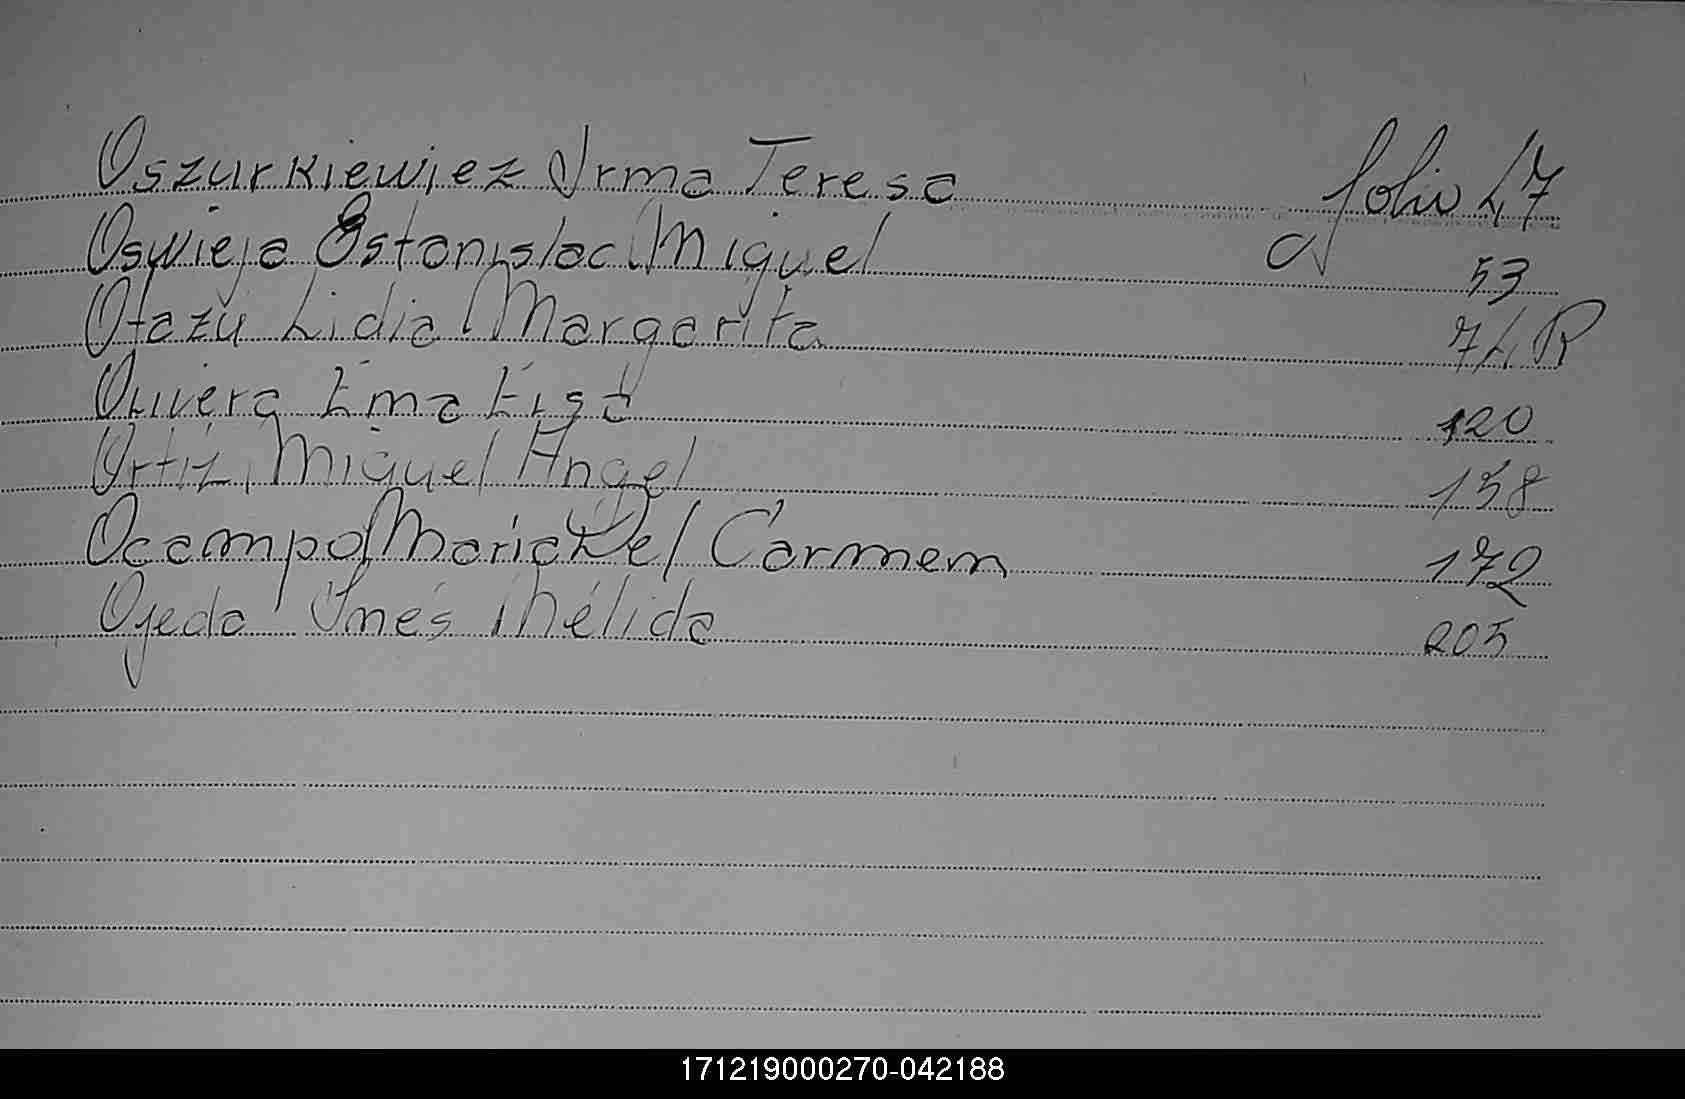 Oszurkiewiez Irma Teresa folio 47
Oswieja Estanislao Miguel 53
Otazu Lidia Margarita 74 R
Olivera Ema Elsa 120
Ortiz, Miguel Angel 158
Ocampo Maria Del Carmem 172
Ojeda Inés Nélida 205
171219000270-042188